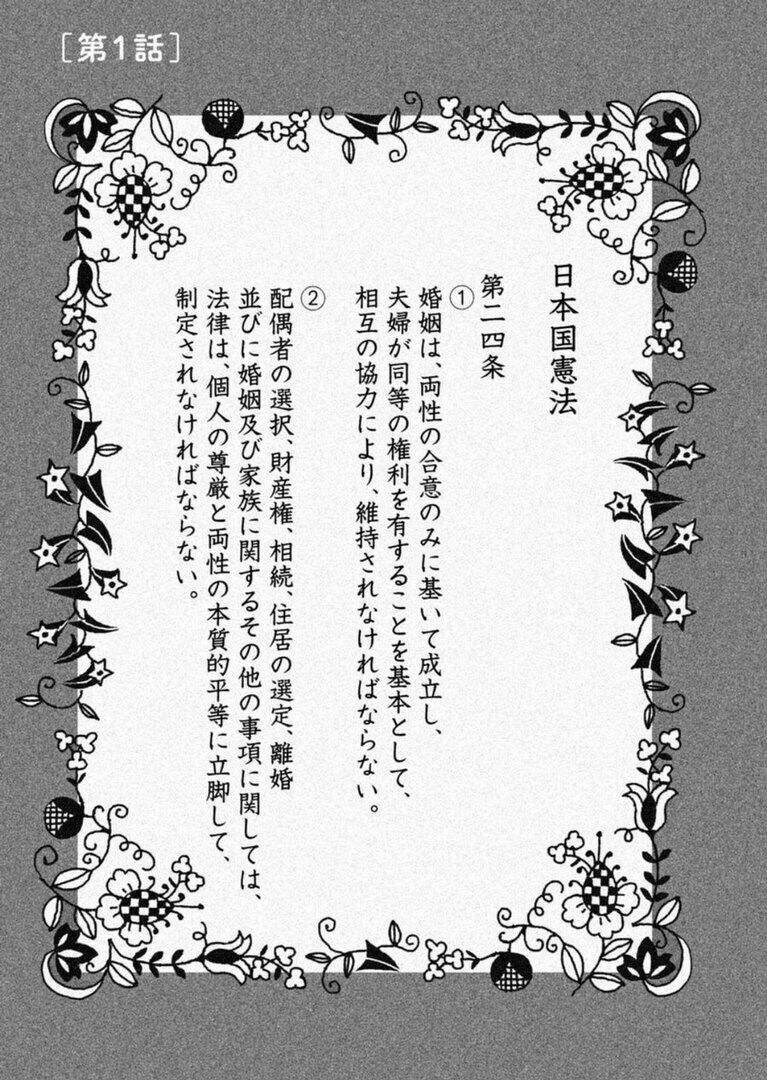 ［第1話］
日本国憲法
第二四条
①
婚姻は、両性の合意のみに基いて成立し、
夫婦が同等の権利を有することを基本として、
相互の協力により、維持されなければならない。
②
配偶者の選択、財産権、相続、住居の選定、離婚
並びに婚姻及び家族に関するその他の事項に関しては、
法律は、個人の尊厳と両性の本質的平等に立脚して、
制定されなければならない。